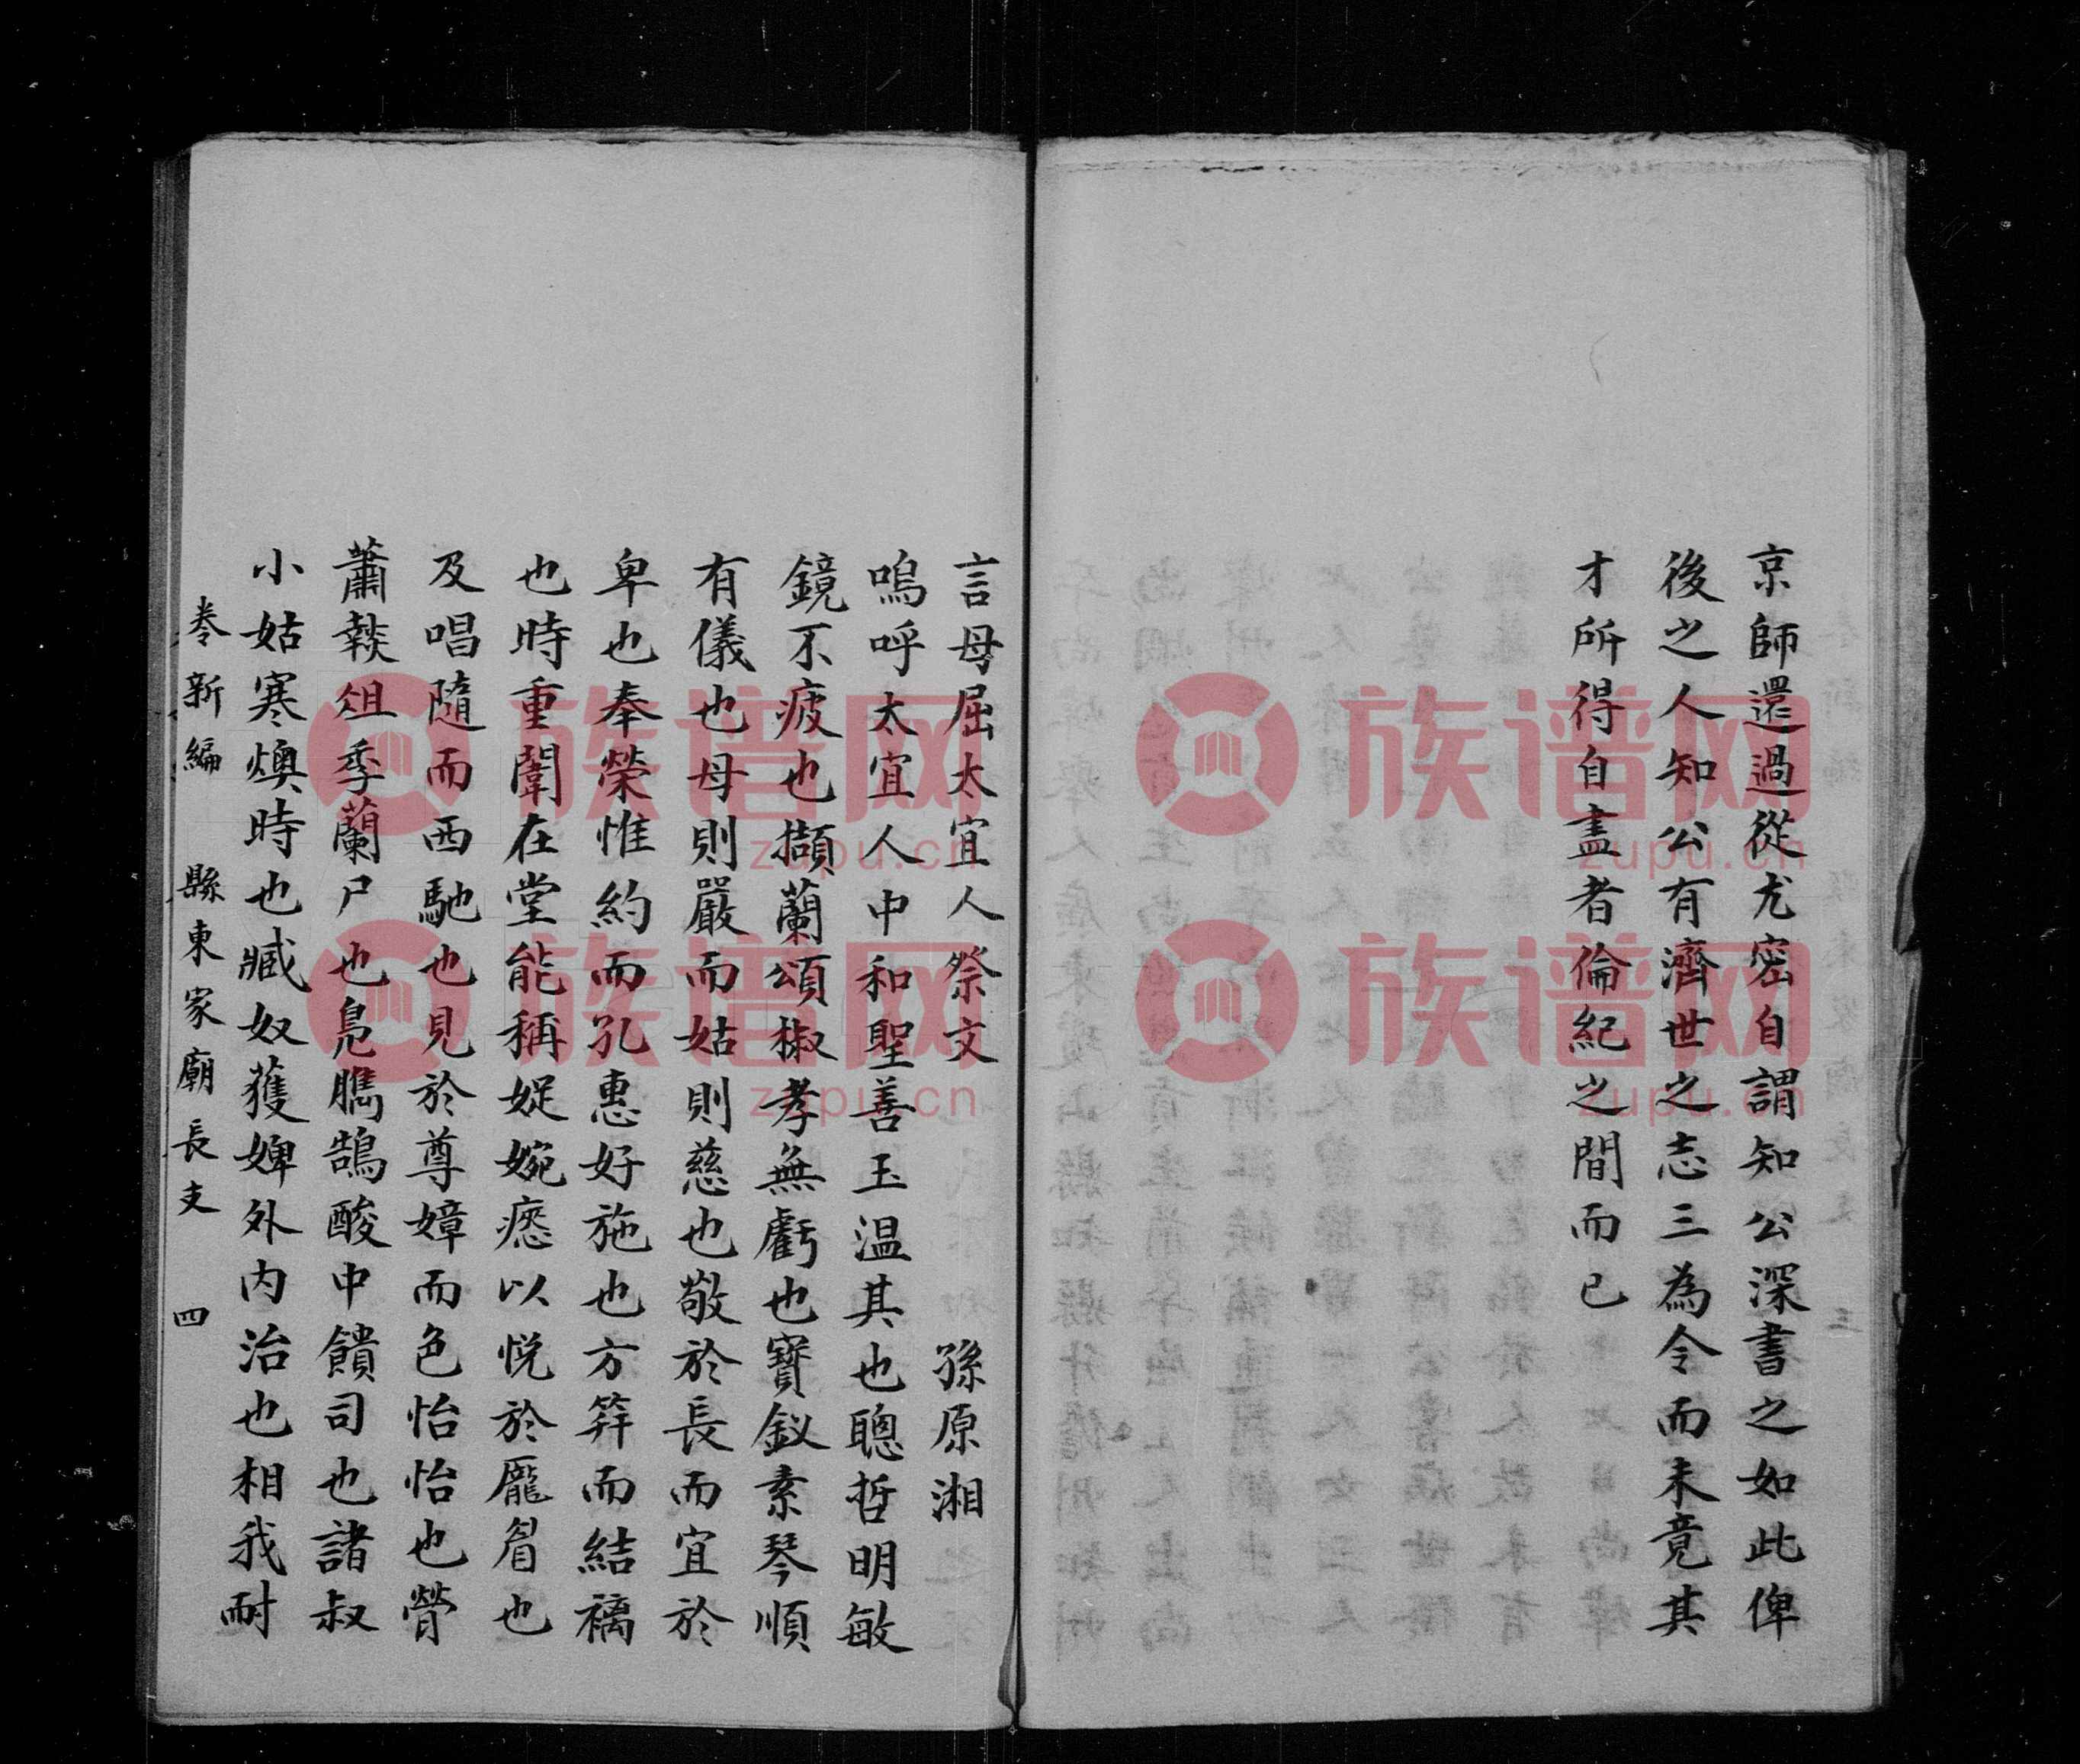 京師還過從尤密自謂知公深書之如此俾
後之人知公有濟世之志三為令而未竟其
才所得自盡者倫紀之間而已
言母屈太宜人祭文
孫原湘
嗚呼太宜人中和聖善玉温其也聰哲明敏
鏡不疲也擷蘭頌椒孝無虧也寶釵素琴順
有儀也母則嚴而姑則慈也敬於長而宜於
卑也奉榮惟約而孔惠好施也方笄而結褵
也時重闈在堂能稱娖婉瘱以悅於厖眉也
及唱隨而西馳也見於尊嫜而色怡怡也膋
蕭燅俎季蘭尸也鳧臇鵠酸中饋司也諸叔
小姑寒燠時也臧奴獲婢外内治也相我耐
卷新編 縣東家廟長支 四
族谱网
zupu.cn
族谱网
zupu.cn
族谱网
zupu.cn
族谱网
zupu.cn